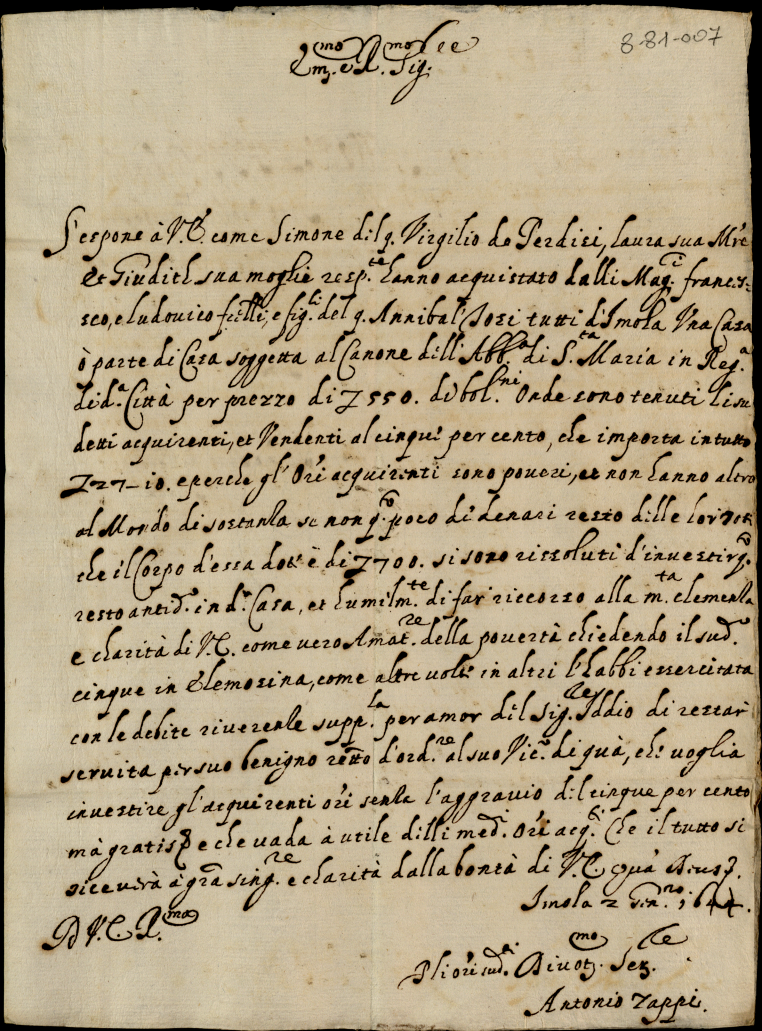 8-81-007
Em.mo e R.mo Sig.re
S'espone à V.E. come Simone del q. Virgilio de Perdisi, laura sua M're
et Giudith sua moglie resp.te hanno acquistato dalli Mag.ci franc:e-
sco, e ludovico f'elli, e fig.li del q. Annibal' Josi tutti d'Imola Una Casa
ò parte di Casa soggetta al Canone dell'Abb.a di S.ta Maria in Reg.a
di d.a Città per prezzo di L 550. di bol.ni Onde sono tenuti li su
detti acquirenti, et Vendenti al cinque per cento, che importa in tutto
L 27-10. e perche gl'Ori acquirenti sono poveri, et non hanno altro
al Mondo di sostanza se non q.o poco di denari resto delle lor doti
che il Corpo d'essa dote è di L 700. si sono rissoluti d'investir q.o
resto antid.o in d.a Casa, et humilm.te di far riccorso alla m.ta clemenza
e charità di V.E. come vero Amat.re della povertà chiedendo il sud.o
cinque in Elemosina, come altre volte in altri l'habbi essercitata
con le debite riverenze supp.la per amor del Sig.re Iddio di restar
servita per suo benigno resto d'ord.re al suo Vic.o di quà, che voglia
investire gl'acquirenti ori senza l'aggravio del cinque per cento
mà gratis, e che vada à utile delli med.i Ori acq.ti Che il tutto si
riceverà à gra sing.re e charità dalla bontà di V.E. quà Deus.
Imola 2 Gen.ro 1644.
D V.E. R.ma
P li ori sud.i Divot.mo Ser.re
Antonio Zappi.